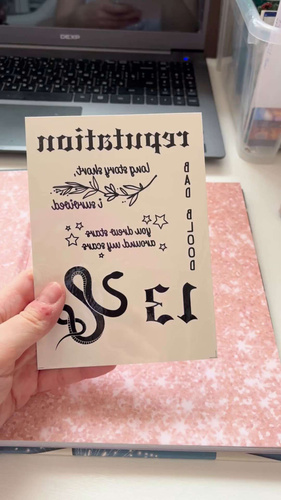 DEXP
reputation
long story short,
i survived
you drew stars
around my scars
BAD BLOOD
13